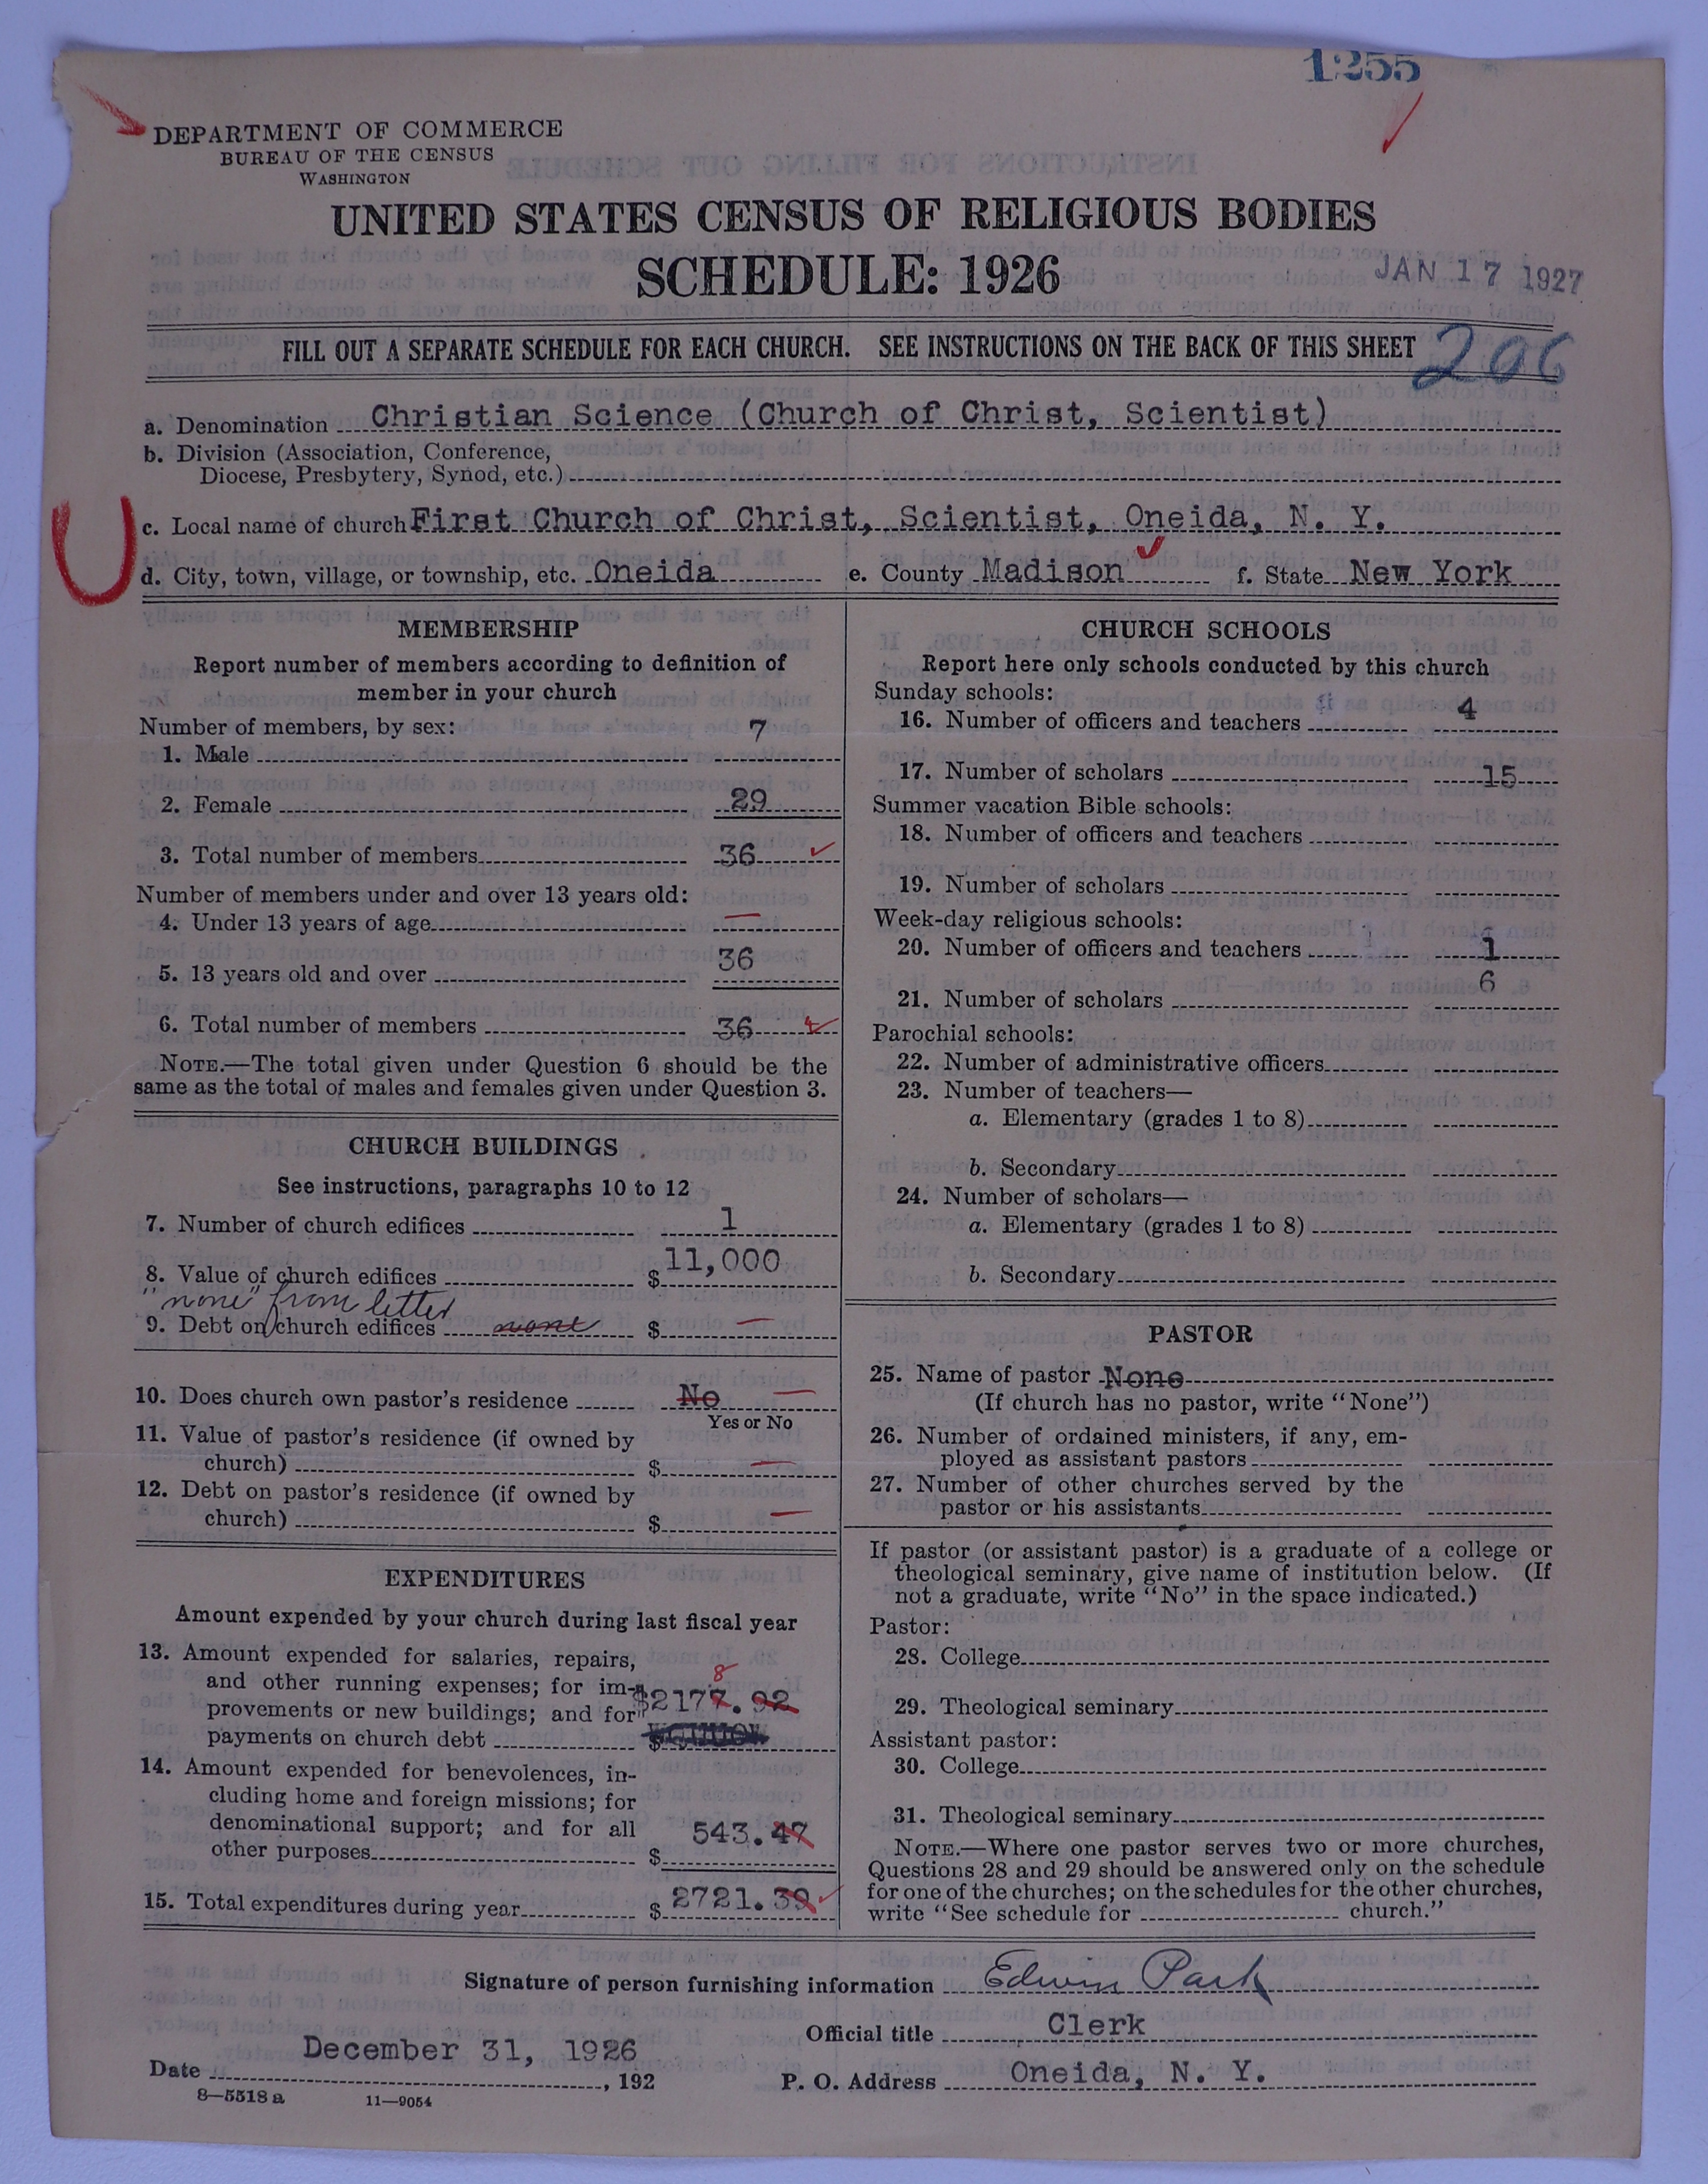 1255
DEPARTMENT OF COMMERCE
BUREAU OF THE CENSUS
WASHINGTON
UNITED STATES CENSUS OF RELIGIOUS BODIES
SCHEDULE: 1926
JAN 17 1927
FILL OUT A SEPARATE SCHEDULE FOR EACH CHURCH. SEE INSTRUCTIONS ON THE BACK OF THIS SHEET
206
a. Denomination Christian Science (Church of Christ, Scientist)
b. Division (Association, Conference,
Diocese, Presbytery, Synod, etc.)
c. Local name of church First Church of Christ, Scientist, Oneida, N. Y.
d. City, town, village, or township, etc. Oneida e. County Madison f. State New York
MEMBERSHIP
Report number of members according to definition of
member in your church
Number of members, by sex:
1. Male 7
2. Female 29
3. Total number of members 36
Number of members under and over 13 years old:
4. Under 13 years of age —
5. 13 years old and over 36
6. Total number of members 36
NOTE.—The total given under Question 6 should be the
same as the total of males and females given under Question 3.
CHURCH BUILDINGS
See instructions, paragraphs 10 to 12
7. Number of church edifices 1
8. Value of church edifices $ 11,000
"none" from letter
9. Debt on church edifices none $ —
10. Does church own pastor's residence No —
Yes or No
11. Value of pastor's residence (if owned by
church) $ —
12. Debt on pastor's residence (if owned by
church) $ —
EXPENDITURES
Amount expended by your church during last fiscal year
13. Amount expended for salaries, repairs,
and other running expenses; for im-
8
provements or new buildings; and for $2177.92
payments on church debt $
14. Amount expended for benevolences, in-
cluding home and foreign missions; for
denominational support; and for all
other purposes $ 543.47
15. Total expenditures during year $ 2721.39
CHURCH SCHOOLS
Report here only schools conducted by this church
Sunday schools:
16. Number of officers and teachers 4
17. Number of scholars 15
Summer vacation Bible schools:
18. Number of officers and teachers
19. Number of scholars
Week-day religious schools:
20. Number of officers and teachers 1
21. Number of scholars 6
Parochial schools:
22. Number of administrative officers
23. Number of teachers—
a. Elementary (grades 1 to 8)
b. Secondary
24. Number of scholars—
a. Elementary (grades 1 to 8)
b. Secondary
PASTOR
25. Name of pastor None
(If church has no pastor, write "None")
26. Number of ordained ministers, if any, em-
ployed as assistant pastors
27. Number of other churches served by the
pastor or his assistants
If pastor (or assistant pastor) is a graduate of a college or
theological seminary, give name of institution below. (If
not a graduate, write "No" in the space indicated.)
Pastor:
28. College
29. Theological seminary
Assistant pastor:
30. College
31. Theological seminary
NOTE.—Where one pastor serves two or more churches,
Questions 28 and 29 should be answered only on the schedule
for one of the churches; on the schedules for the other churches,
write "See schedule for church."
Signature of person furnishing information Edwin Park
Official title Clerk
Date December 31, 1926 , 192
P. O. Address Oneida, N. Y.
8—5518 a 11—9054